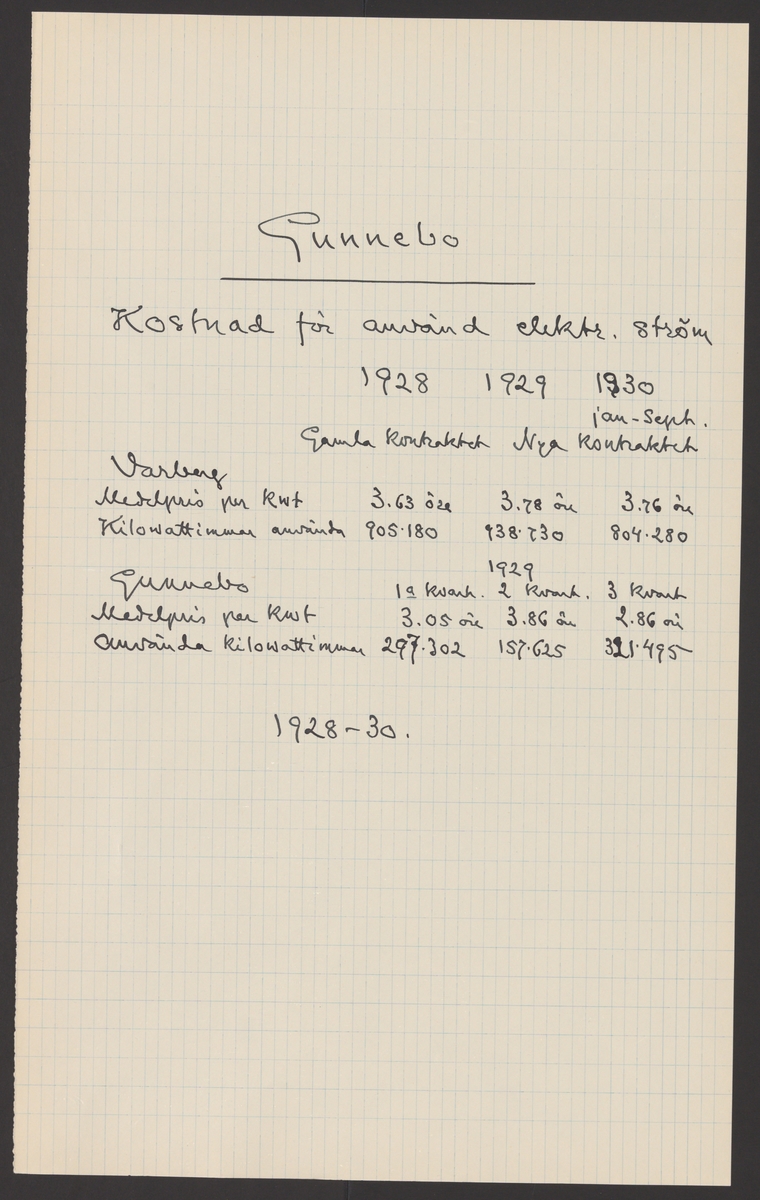 Gunnebo
Kostnad för använd elektr. ström
1928 1929 1930
jan-Sept.
Gamla kontraktet Nya kontraktet
Varberg
Medelpris per Kwt 3.63 öre 3.78 öre 3.76 öre
Kilowattimmar använda 905.180 938.730 804.280
1929
Gunnebo 1a kvart. 2 kvart. 3 kvart
Medelpris per Kwt 3.05 öre 3.86 öre 2.86 öre
använda kilowattimmar 297.302 157.625 321.495
1928-30.